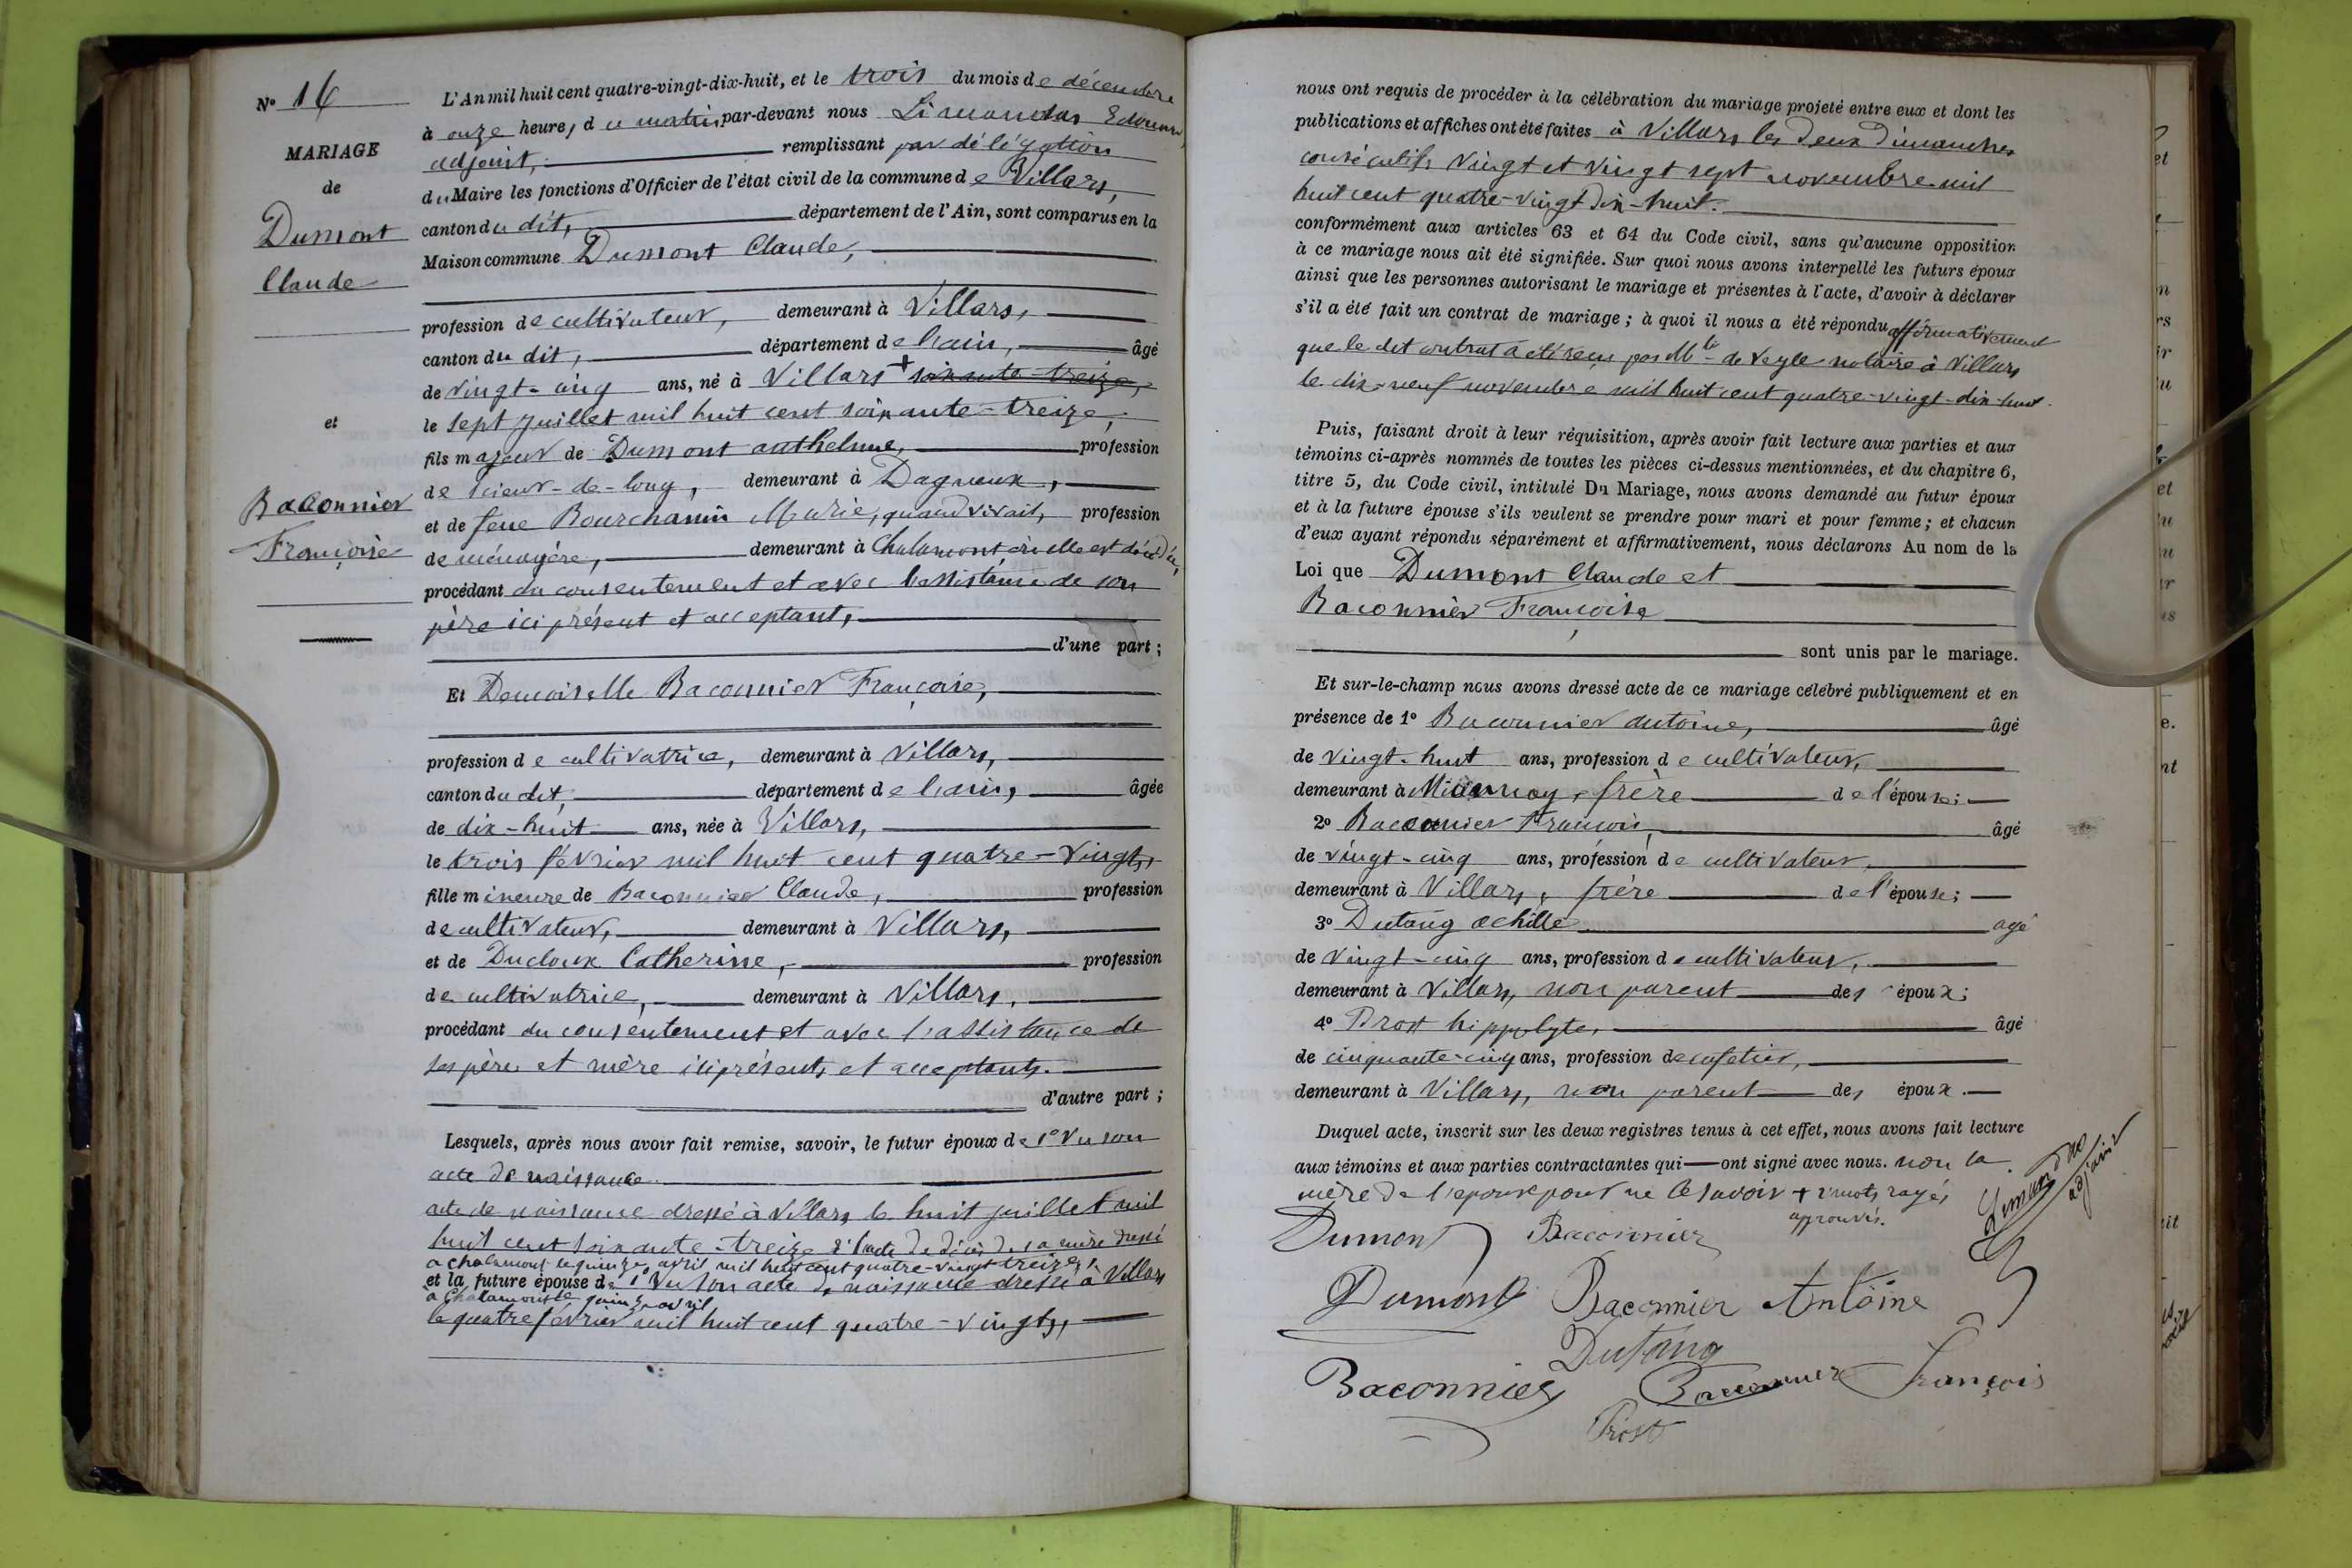 N° 16
MARIAGE
de
Dumont
Claude
et
Baconnier
Françoise
L'An mil huit cent quatre-vingt-dix-huit, et le trois du mois de décembre
à onze heures du matin, par-devant nous Limandas Edouard
adjoint, remplissant par délégation
du Maire les fonctions d'Officier de l'état civil de la commune de Villars,
canton du dit, département de l'Ain, sont comparus en la
Maison commune Dumont Claude,
profession de cultivateur, demeurant à Villars,
canton du dit, département de l'ain, âgé
de vingt-cinq ans, né à Villars + soixante-treize,
le sept juillet mil huit cent soixante-treize,
fils majeur de Dumont anthelme, profession
de scieur-de-long, demeurant à Dagneux,
et de feue Bourchanin Marie, quand vivait, profession
de ménagère, demeurant à Chalamont où elle est décédée,
procédant du consentement et avec l'assistance de son
père ici présent et acceptant,
d'une part ;
Et Demoiselle Baconnier Françoise,
profession de cultivatrice, demeurant à Villars,
canton du dit, département de l'ain, âgée
de dix-huit ans, née à Villars,
le trois février mil huit cent quatre-vingts,
fille mineure de Baconnier Claude, profession
de cultivateur, demeurant à Villars,
et de Ducloux Catherine, profession
de cultivatrice, demeurant à Villars,
procédant du consentement et avec l'assistance de
ses père et mère ici présents et acceptants.
d'autre part ;
Lesquels, après nous avoir fait remise, savoir, le futur époux de 1° Vu son
acte de naissance
acte de naissance dressé à Villars le huit juillet mil
huit cent soixante-treize 2° l'acte de décès de sa mère dressé
à Chalamont le quinze avril mil huit cent quatre-vingt treize,
et la future épouse de 1° Vu son acte de naissance dressé à Villars
à Chalamont le quinze avril
le quatre février mil huit cent quatre-vingts,
nous ont requis de procéder à la célébration du mariage projeté entre eux et dont les
publications et affiches ont été faites à Villars les deux Dimanches
consécutifs vingt et vingt sept novembre mil
huit cent quatre-vingt Dix-huit.
conformément aux articles 63 et 64 du Code civil, sans qu'aucune opposition
à ce mariage nous ait été signifiée. Sur quoi nous avons interpellé les futurs époux
ainsi que les personnes autorisant le mariage et présentes à l'acte, d'avoir à déclarer
s'il a été fait un contrat de mariage ; à quoi il nous a été répondu affirmativement
que le dit contrat a été reçu par Mte de Veyle notaire à Villars
le dix-neuf novembre mil huit cent quatre-vingt-dix-huit.
Puis, faisant droit à leur réquisition, après avoir fait lecture aux parties et aux
témoins ci-après nommés de toutes les pièces ci-dessus mentionnées, et du chapitre 6,
titre 5, du Code civil, intitulé Du Mariage, nous avons demandé au futur époux
et à la future épouse s'ils veulent se prendre pour mari et pour femme ; et chacun
d'eux ayant répondu séparément et affirmativement, nous déclarons Au nom de la
Loi que Dumont Claude et
Baconnier Françoise
sont unis par le mariage.
Et sur-le-champ nous avons dressé acte de ce mariage célébré publiquement et en
présence de 1° Baconnier Antoine, âgé
de vingt-huit ans, profession de cultivateur,
demeurant à Mionnay, frère de l'épouse ;
2° Baconnier François, âgé
de vingt-cinq ans, profession de cultivateur,
demeurant à Villars, frère de l'épouse ;
3° Dutang Achille agé
de vingt-cinq ans, profession de cultivateur,
demeurant à Villars, non parent des époux ;
4° Prost hippolyte, âgé
de cinquante-cinq ans, profession de cafetier,
demeurant à Villars, non parent des époux.
Duquel acte, inscrit sur les deux registres tenus à cet effet, nous avons fait lecture
aux témoins et aux parties contractantes qui ont signé avec nous. non la
mère de l'épouse pour ne le savoir + 2 mots rayés
approuvés.
Limandas
adjoint
Dumont Baconnier
Dumont Baconnier Antoine
Dutang
Baconnier Baconnier François
Prost